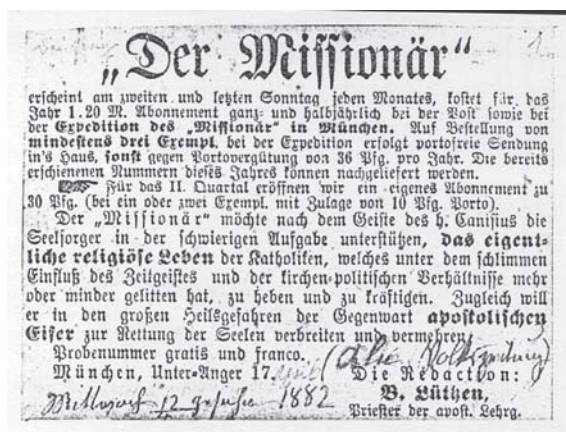 „Der Missionär“
erscheint am zweiten und letzten Sonntag jeden Monates, kostet für das
Jahr 1.20 M. Abonnement ganz- und halbjährlich bei der Post sowie bei
der Expedition des „Missionär“ in München. Auf Bestellung von
mindestens drei Exempl. bei der Expedition erfolgt portofreie Sendung
in's Haus, sonst gegen Portovergütung von 36 Pfg. pro Jahr. Die bereits
erschienenen Nummern dieses Jahres können nachgeliefert werden.
Für das II. Quartal eröffnen wir ein eigenes Abonnement zu
30 Pfg. (bei ein oder zwei Exempl. mit Zulage von 10 Pfg. Porto).
Der „Missionär“ möchte nach dem Geiste des h. Canisius die
Seelsorger in der schwierigen Aufgabe unterstützen, das eigent-
liche religiöse Leben der Katholiken, welches unter dem schlimmen
Einfluß des Zeitgeistes und der kirchen-politischen Verhältnisse mehr
oder minder gelitten hat, zu heben und zu kräftigen. Zugleich will
er in den großen Heilsgefahren der Gegenwart apostolischen
Eifer zur Rettung der Seelen verbreiten und vermehren.
Probenummer gratis und franco.
München, Unter-Anger 17. Die Redaction:
B. Lüthen,
Priester der apost. Lehrg.
Mittwoch 12 1882